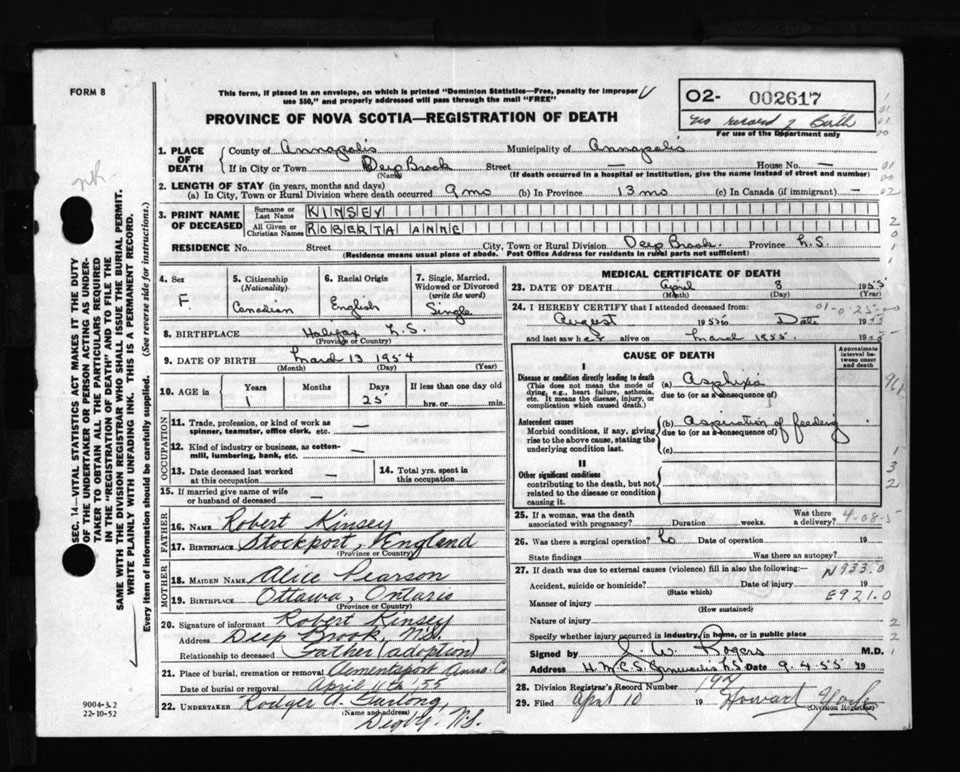 FORM 8
This form, if placed in an envelope, on which is printed "Dominion Statistics—Free, penalty for improper
use $50," and properly addressed will pass through the mail "FREE"
PROVINCE OF NOVA SCOTIA—REGISTRATION OF DEATH
02- 002617
no record of Birth
For use of the Department only
1. PLACE OF DEATH
County of Annapolis Municipality of Annapolis
If in City or Town Deep Brook Street — House No. —
(Name) (If death occurred in a hospital or institution, give the name instead of street and number)
2. LENGTH OF STAY (in years, months and days)
(a) In City, Town or Rural Division where death occurred 9 mo (b) In Province 13 mo (c) In Canada (if immigrant) —
3. PRINT NAME OF DECEASED
Surname or Last Name KINSEY
All Given or Christian Names ROBERTA ANNE
RESIDENCE No. Street City, Town or Rural Division Deep Brook Province N.S.
(Residence means usual place of abode. Post Office Address for residents in rural parts not sufficient)
4. Sex F.
5. Citizenship (Nationality) Canadian
6. Racial Origin English
7. Single, Married, Widowed or Divorced (write the word) Single
8. BIRTHPLACE Halifax N.S.
(Province or Country)
9. DATE OF BIRTH March 13 1954
(Month) (Day) (Year)
10. AGE in Years 1 Months Days 25 If less than one day old hrs. or min.
OCCUPATION
11. Trade, profession, or kind of work as spinner, teamster, office clerk, etc. —
12. Kind of industry or business, as cotton-mill, lumbering, bank, etc. —
13. Date deceased last worked at this occupation —
14. Total yrs. spent in this occupation
15. If married give name of wife or husband of deceased —
FATHER
16. NAME Robert Kinsey
17. BIRTHPLACE Stockport, England
(Province or Country)
MOTHER
18. MAIDEN NAME Alice Pearson
19. BIRTHPLACE Ottawa, Ontario
(Province or Country)
20. Signature of informant Robert Kinsey
Address Deep Brook, N.S.
Relationship to deceased Father (adoption)
21. Place of burial, cremation or removal Clementsport Anna. Co
Date of burial or removal April 11th '55
22. UNDERTAKER Rodger A. Furlong
(Name and address)
Digby. N.S.
MEDICAL CERTIFICATE OF DEATH
23. DATE OF DEATH April 8 1955
(Month) (Day) (Year)
24. I HEREBY CERTIFY that I attended deceased from:
01-0-25-
August Date
and last saw her alive on March 1955.
CAUSE OF DEATH
Approximate interval between onset and death
I
Disease or condition directly leading to death
(This does not mean the mode of dying, e.g., heart failure, asthenia, etc. It means the disease, injury, or complication which caused death.)
(a) Asphyxia
due to (or as a consequence of)
Antecedent causes
Morbid conditions, if any, giving rise to the above cause, stating the underlying condition last.
(b) Aspiration of feeding
due to (or as a consequence of)
(c)
II
Other significant conditions
contributing to the death, but not related to the disease or condition causing it.
25. If a woman, was the death associated with pregnancy? Duration weeks. Was there a delivery? 4-08-5
26. Was there a surgical operation? No Date of operation 19
State findings Was there an autopsy?
27. If death was due to external causes (violence) fill in also the following:— N933.0
Accident, suicide or homicide? Date of injury 19
(State which) E921.0
Manner of injury
(How sustained)
Nature of injury
Specify whether injury occurred in industry, in home, or in public place
Signed by W. Rogers M.D.
Address H.M.C.S. Cornwallis N.S. Date 9.4.55 19
28. Division Registrar's Record Number
29. Filed April 10 19 Howard York
(Division Registrar)
SEC. 14—VITAL STATISTICS ACT MAKES IT THE DUTY
OF THE UNDERTAKER OR PERSON ACTING AS UNDER-
TAKER TO OBTAIN ALL THE PARTICULARS REQUIRED
IN THE "REGISTRATION OF DEATH" AND TO FILE THE
SAME WITH THE DIVISION REGISTRAR WHO SHALL ISSUE THE BURIAL PERMIT.
WRITE PLAINLY WITH UNFADING INK. THIS IS A PERMANENT RECORD.
Every item of information should be carefully supplied. (See reverse side for instructions.)
9004-3.2
22-10-52